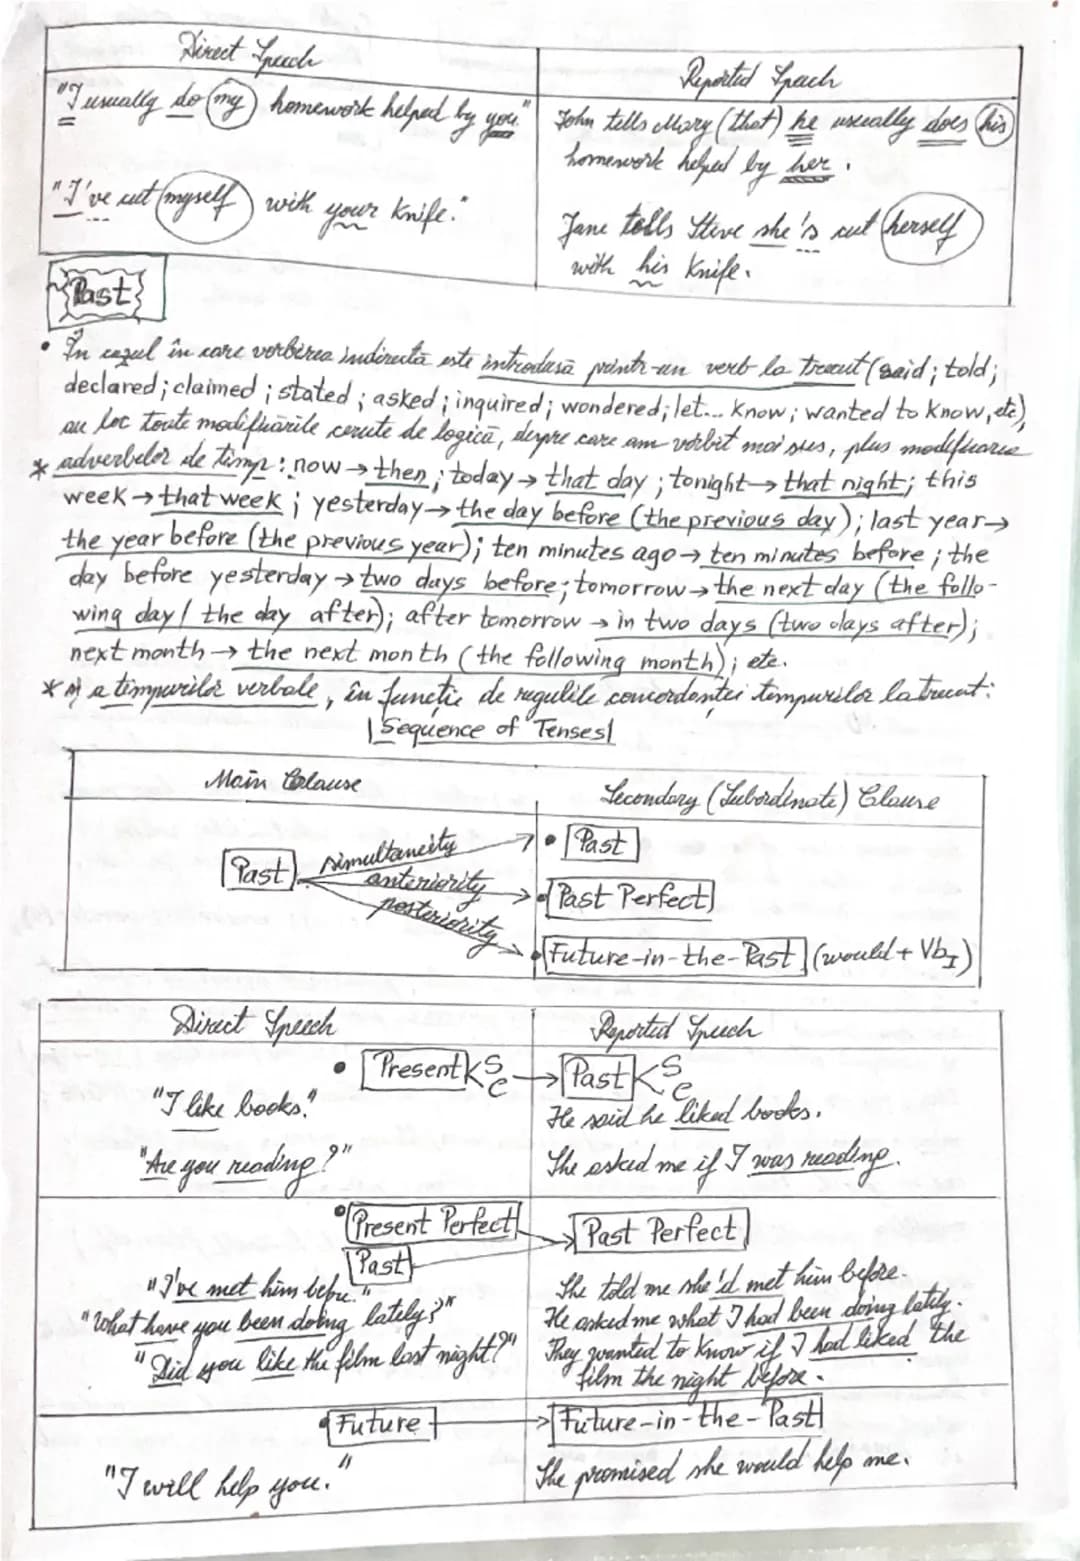 Direct Speech
Reported Speech
"I usually do my homework helped by you."
John tells Mary (that) he usually does his
homework helped by her.
"I've cut myself with your knife."
Jane tells Steve she's cut herself
with his knife.
Past
• În cazul în care vorbirea indirectă este introdusă printr-un verb la trecut (said; told;
declared; claimed; stated; asked; inquired; wondered; let... know; wanted to know, etc)
au loc toate modificările cerute de logică, despre care am vorbit mai sus, plus modificarea
* adverbelor de timp: now → then; today → that day; tonight → that night; this
week → that week; yesterday → the day before (the previous day); last year →
the year before (the previous year); ten minutes ago → ten minutes before; the
day before yesterday → two days before; tomorrow → the next day (the follo-
wing day / the day after); after tomorrow → in two days (two days after);
next month → the next month (the following month); etc.
* și a timpurilor verbale, în funcție de regulile concordanței timpurilor la trecut:
|Sequence of Tenses|
Main Clause
Secondary (Subordinate) Clause
Past
simultaneity
• Past
anteriority
• Past Perfect
posteriority
• Future-in-the-Past (would + VbI)
Direct Speech
Reported Speech
• Present < S C → Past < S C
"I like books."
He said he liked books.
"Are you reading?"
She asked me if I was reading.
• Present Perfect
Past Perfect
Past
"I've met him before."
She told me she'd met him before.
"What have you been doing lately?"
He asked me what I had been doing lately.
"Did you like the film last night?"
They wanted to know if I had liked the
film the night before.
• Future → Future-in-the-Past
"I will help you."
She promised she would help me.